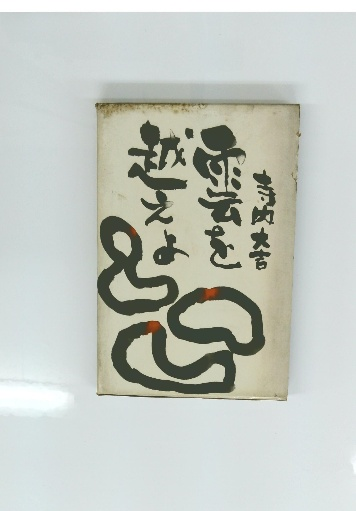 寺内大吉
雲を
越えよ